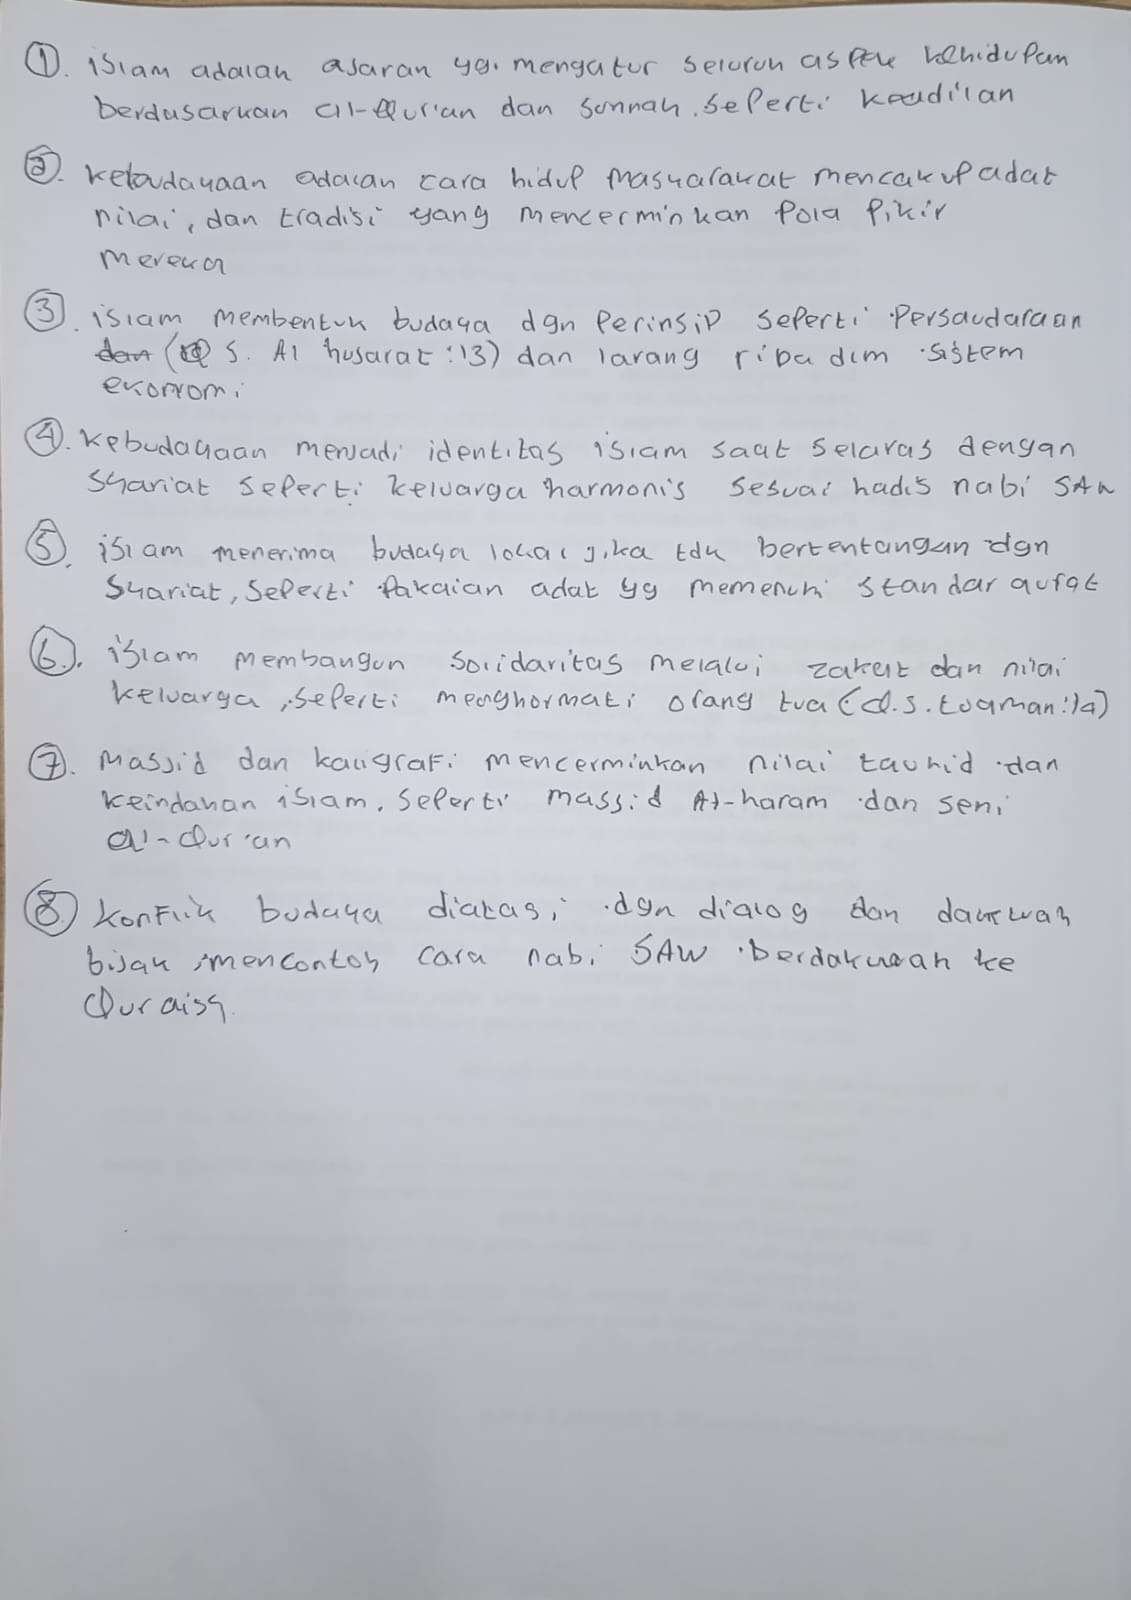 1. islam adalah ajaran yg mengatur seluruh aspek kehidupan
berdasarkan al-Qur'an dan sunnah. seperti keadilan
2. kebudayaan adalah cara hidup masyarakat mencakup adat
nilai, dan tradisi yang mencerminkan pola pikir
mereka
3. islam membentuk budaya dgn perinsip seperti persaudaraan
dan (Q S. Al husarat :13) dan larang riba dlm sistem
ekonomi
4. kebudayaan menjadi identitas islam saat selaras dengan
syariat seperti keluarga harmonis sesuai hadis nabi SAW
5. islam menerima budaya lokal jika tdk bertentangan dgn
syariat, seperti pakaian adat yg memenuhi standar aurat
6. islam membangun solidaritas melalui zakat dan nilai
keluarga, seperti menghormati orang tua (Q.S. Luqman:14)
7. Masjid dan kaligrafi mencerminkan nilai tauhid dan
keindahan islam. seperti masjid Al-haram dan seni
al-Qur'an
8. konflik budaya diatasi dgn dialog dan dakwah
bijak, mencontoh cara nabi SAW berdakwah ke
Quraisy.